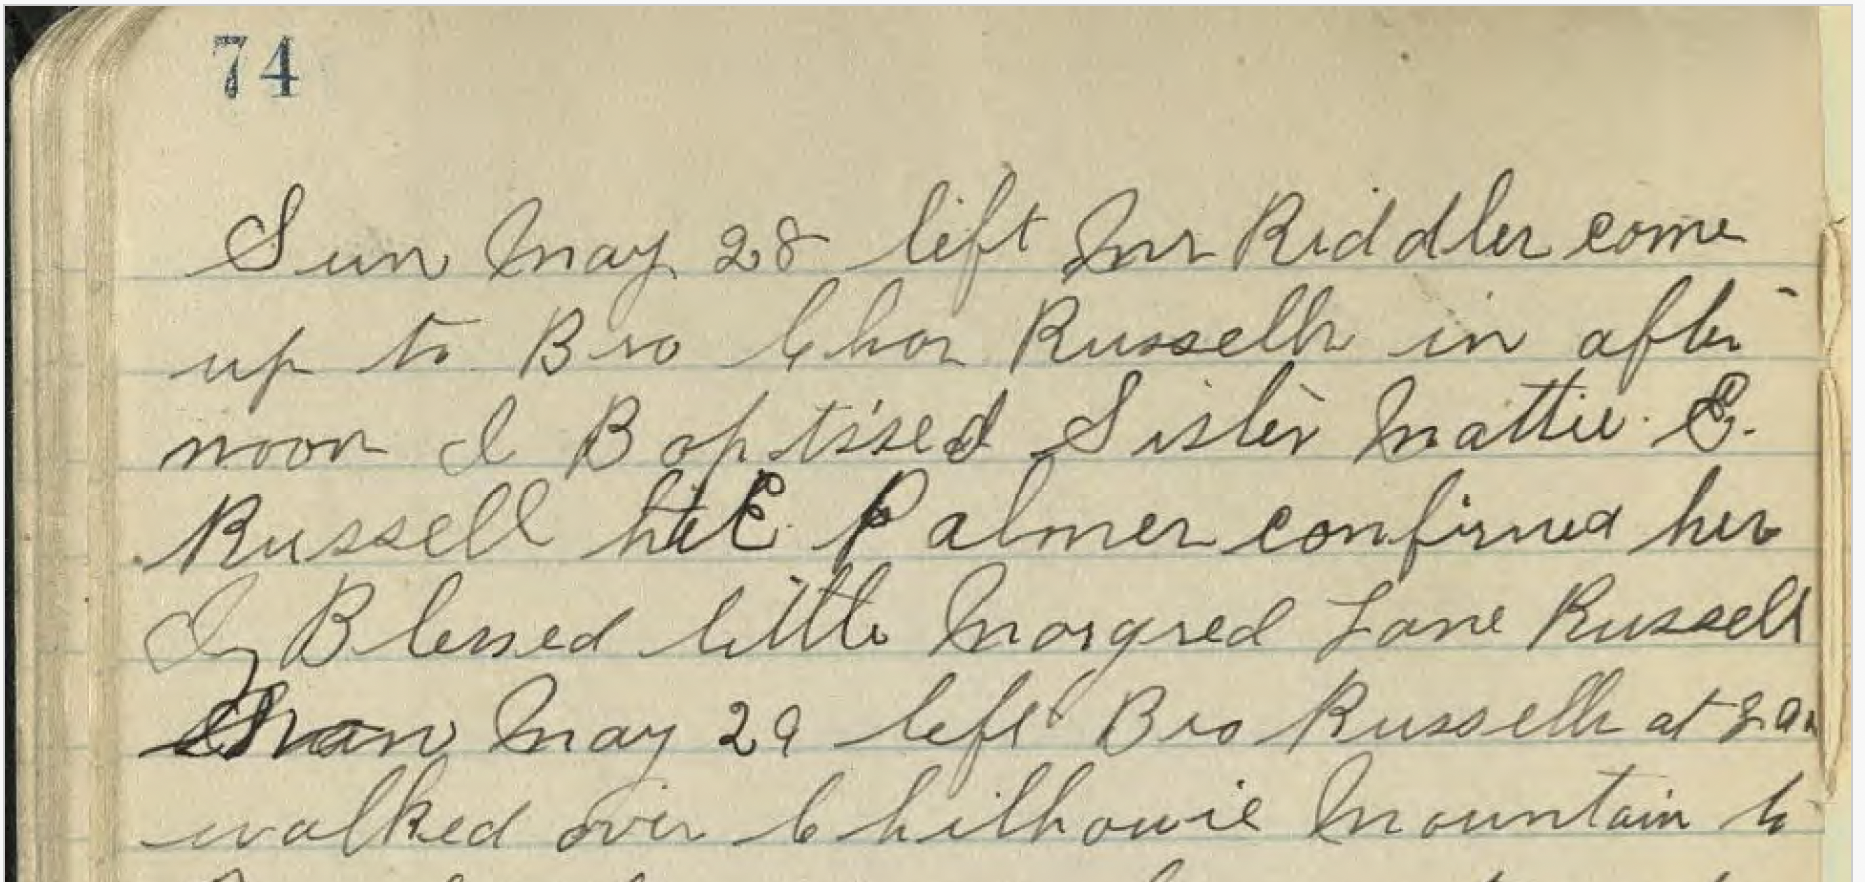 74
Sun May 28 left Mr Riddler come
up to Bro Chas Russells in after
noon I Baptised Sister Mattie E.
Russell E. Palmer confirmed her
I Blessed little Margred Jane Russell
May 29 left Bro Russells at 8 am
walked over Chilhowie Mountain to